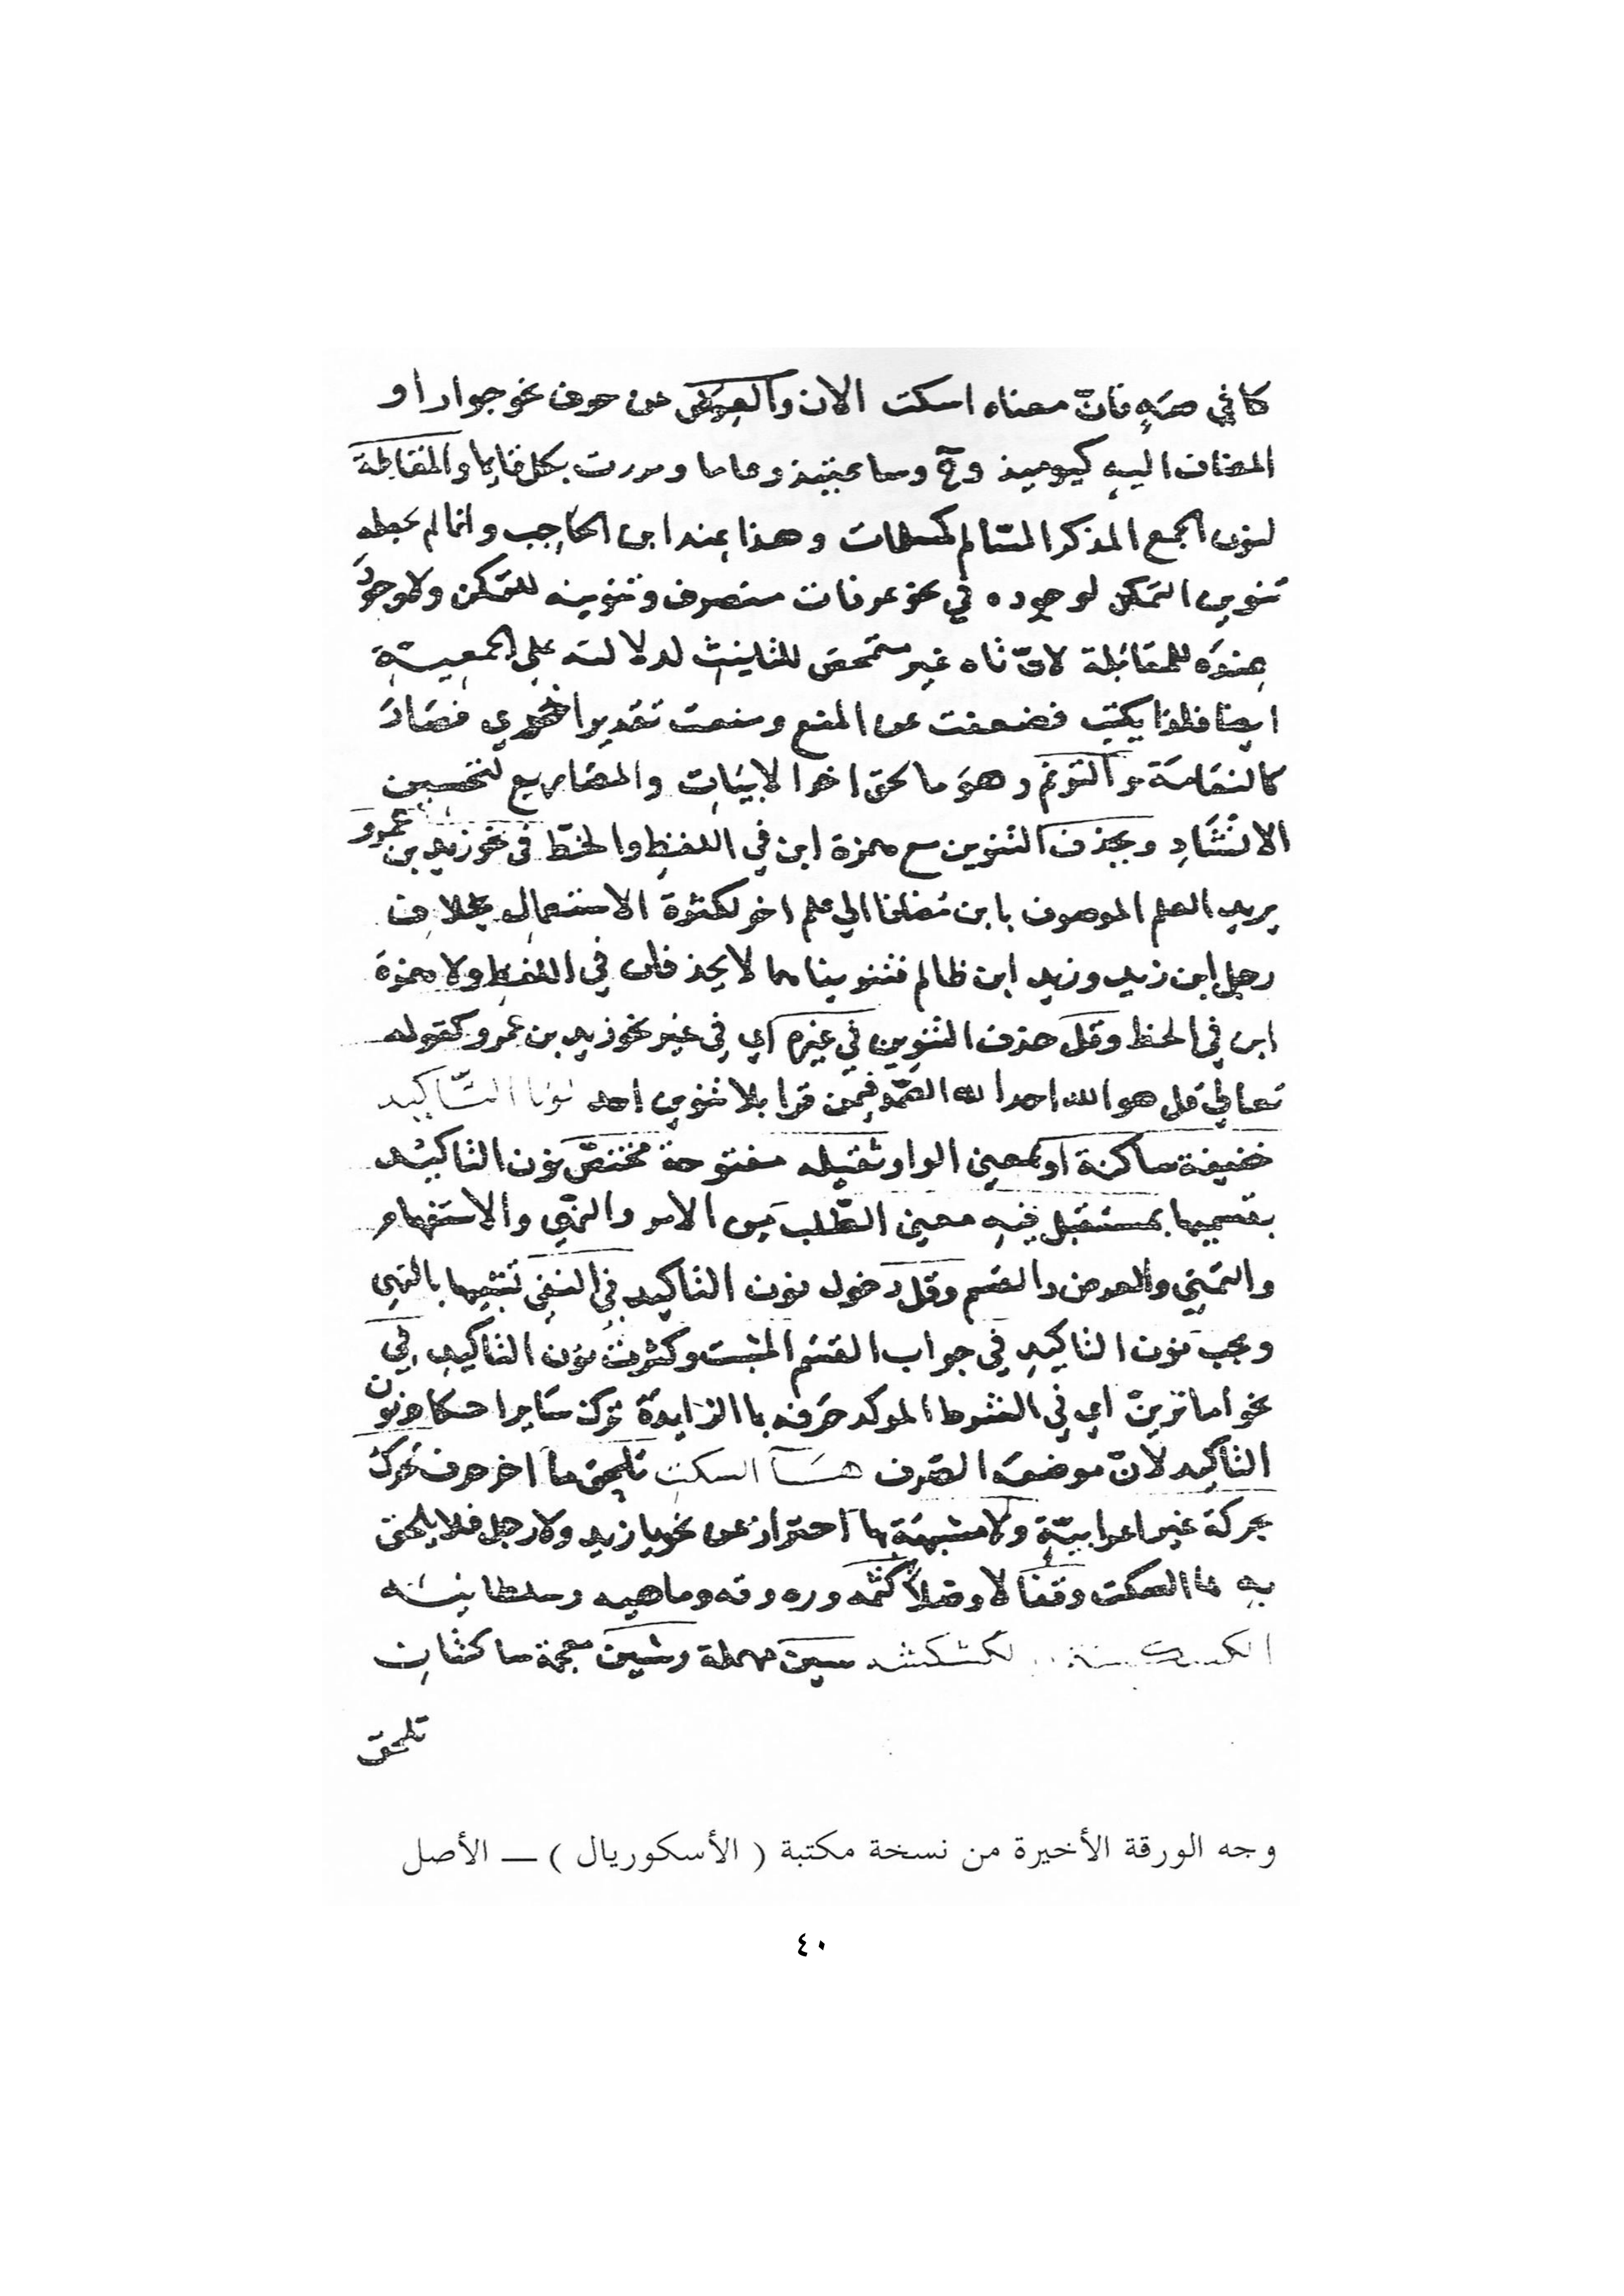 كما في صهٍ فانّ معناه اسكت الان والعوض عن حرف نحو جوار او
المضاف اليه كيوميذ وح وساعتيذ وعاما ومررت بكل قايما والمقابلة
لنون الجمع المذكر السّالم كمسلمات وهذا عند ابن الحاجب وانما لم يجعله
تنوين التمكن لوجوده في نحو عرفات منصرف وتنوينه للتمكن ولا وجود
عنده للمقابلة لانّ تاه غير متمحض للتانيث لدلالته على الجمعيّة
ايضا فضعفت عن المنع ومنعت تقدير اخرى فصار
كالنعامة والترنم وهو ما لحق اخر الابيات والمصاريع لتحسين
الانشاد ويحذف التنوين مع همزة ابن في اللفظ والخطّ في نحو زيد بن عمرو
يريد العلم الموصوف بابن مضافا الي علم اخر لكثرة الاستعمال بخلاف
رجل ابن زيد وزيد ابن ظالم فتنويناهما لا يحذفان في اللفظ ولا همزة
ابن في الخط وقلّ حذف التنوين في غيره اي في غير نحو زيد بن عمرو كقوله
تعالي قل هو الله احد الله الصّمد فيمن قرا بلا تنوين احد نونا التّاكيد
خفيفة ساكنة او بمعني الواو ثقيله مفتوحة مختصّ نون التاكيد
بقسميها بمستقبل فيه معني الطّلب من الامر والنهي والاستفهام
والتمنّي والعرض والقسم وقلّ دخول نون التاكيد في النفي تشبيها بالنهي
ويجب نون التاكيد في جواب القسم المثبت وكثرت نون التاكيد في
نحو اما ترينّ اي في الشرط الموكد حرفه بما الزايدة ترك ساير احكام نون
التاكيد لانّ موضعه الصّرف هآ السكت تلحق ما اخر حرف تحرك
بحركة غير اعرابيّة ولا مشبهة بها احتراز عن نحو يا زيد ولا رجل فلا يلحق
به ها السكت وقفا لا وصلا كثمّه وره وقه وما هيه وسلطانيه
الكسكسة لكشكشه سين مهملة وشين معجمة ساكنتان
تلحق
وجه الورقة الأخيرة من نسخة مكتبة ( الأسكوريال ) — الأصل
٤٠